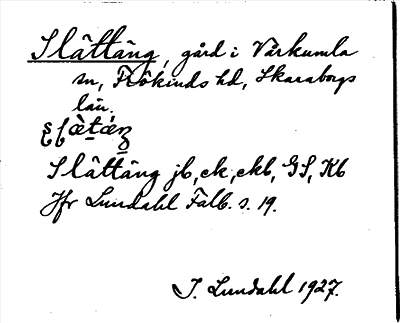 Slättäng, gård i Vårkumla
sn, Frökinds hd, Skaraborgs
län.
Slättäng jb, ek, ekb, GS, Kb
Jfr Lundahl Falb. s. 19.
I. Lundahl 1927.